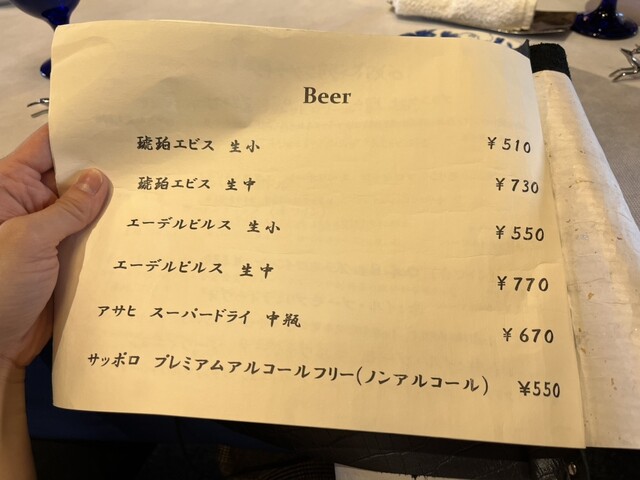 Beer
琥珀エビス 生小 ¥510
琥珀エビス 生中 ¥730
エーデルピルス 生小 ¥550
エーデルピルス 生中 ¥770
アサヒ スーパードライ 中瓶 ¥670
サッポロ プレミアムアルコールフリー(ノンアルコール) ¥550